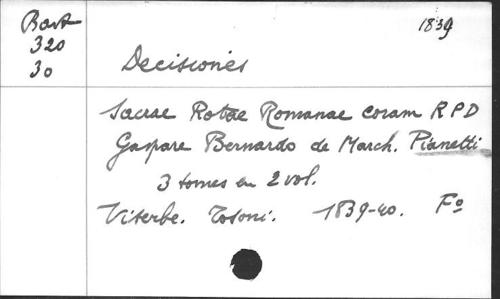 Bart
320
30
1839
Decisiones
Sacrae Rotae Romanae coram R P D
Gaspare Bernardo de March. Pianetti
3 tomes en 2 vol.
Viterbe. Tosoni. 1839-40. Fo